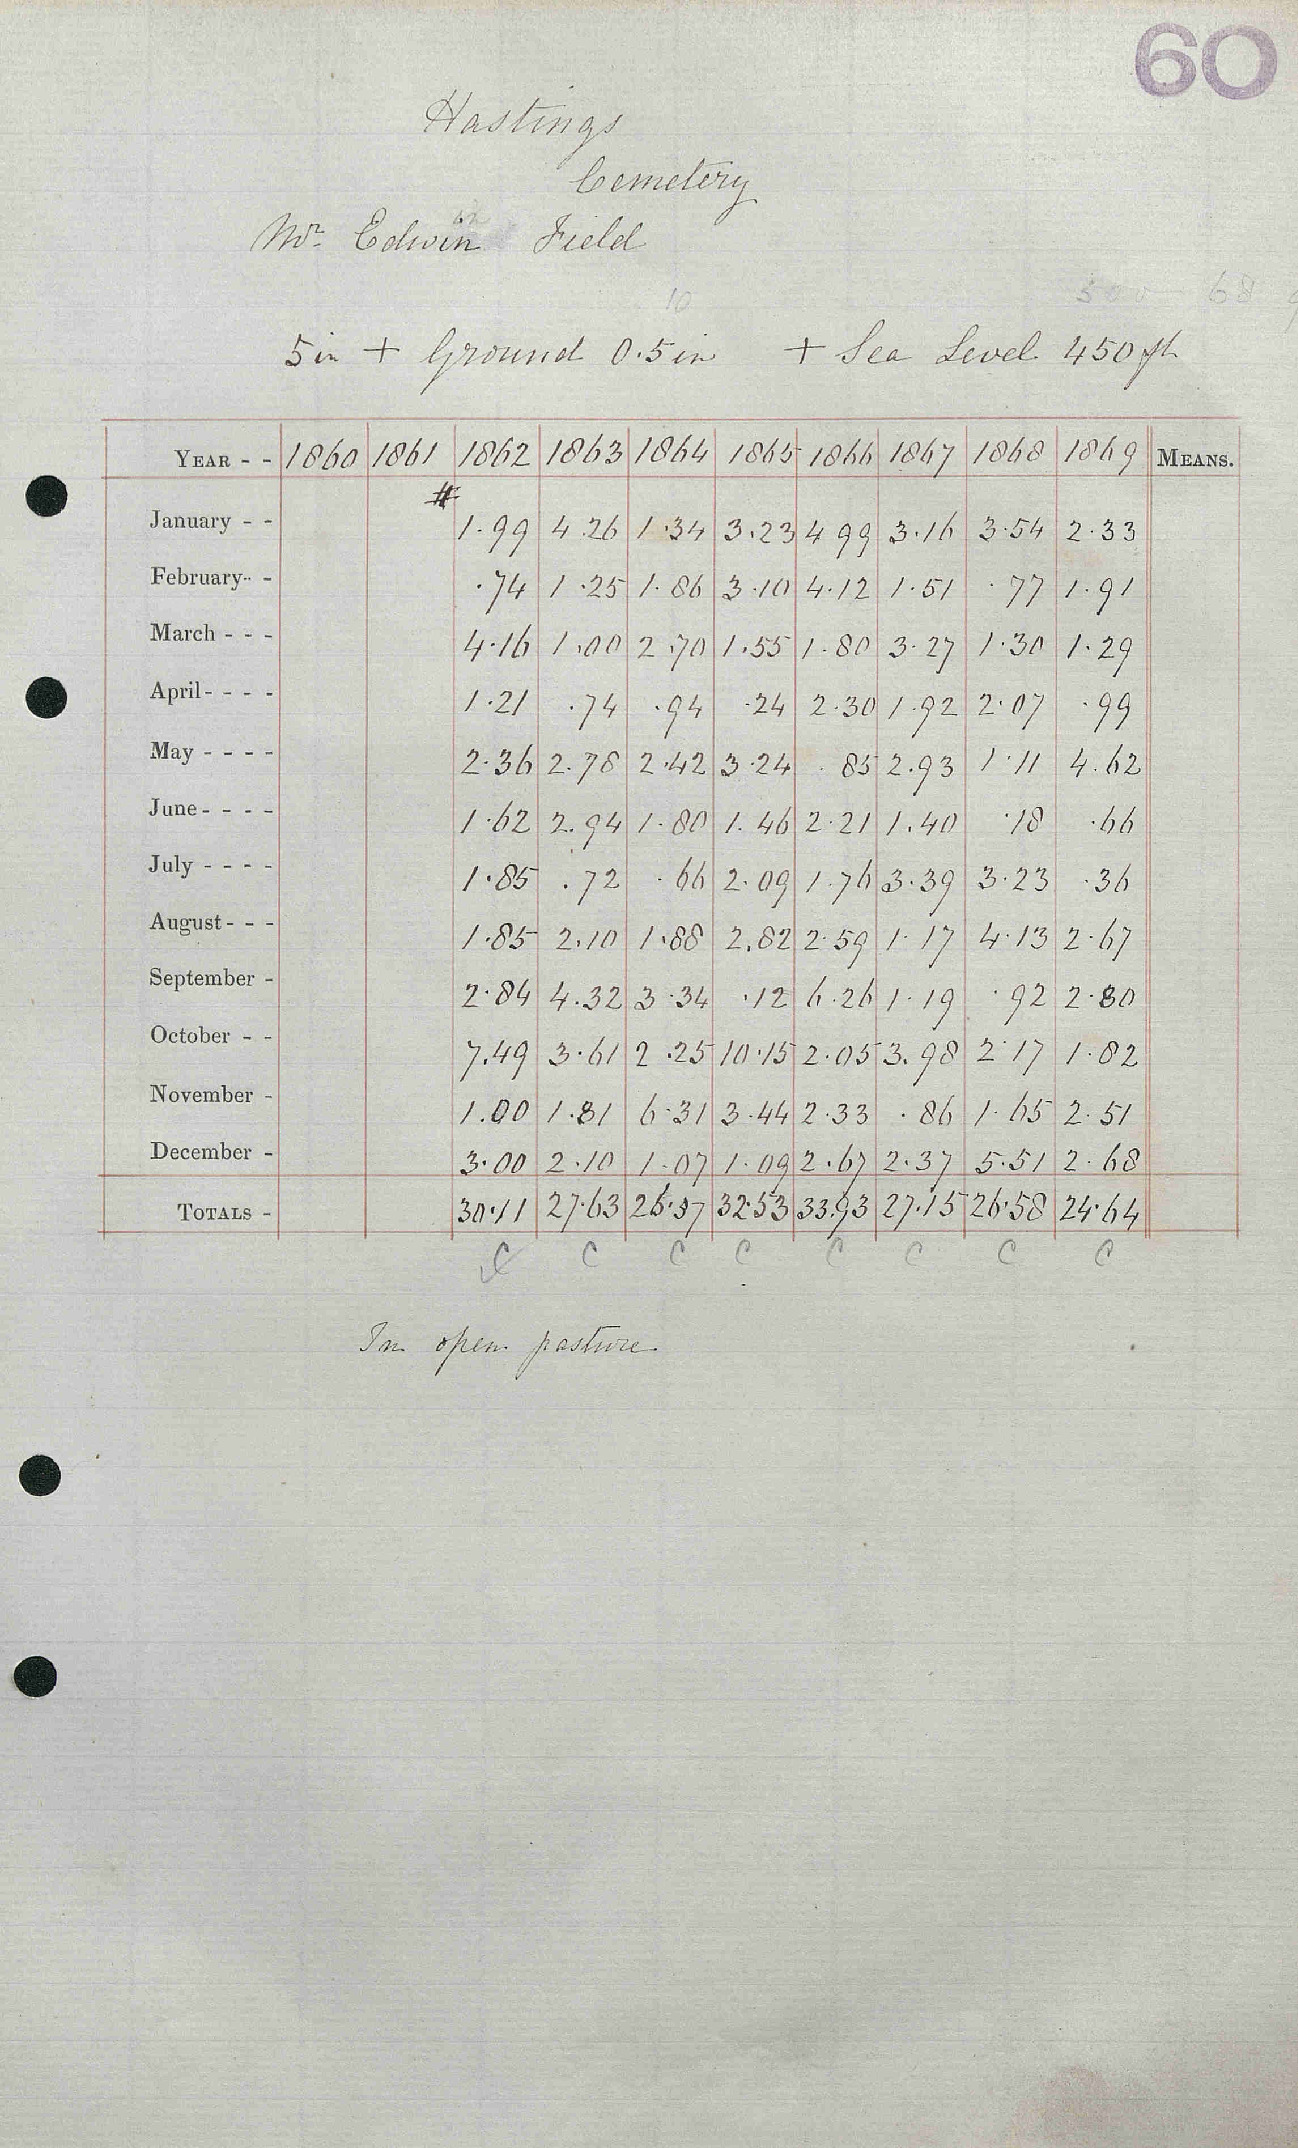 60
Hastings
Cemetery
Mr Edwin Field
10
5 in + Ground 0.5 in + Sea Level 450 ft
YEAR - - 1860 1861 1862 1863 1864 1865 1866 1867 1868 1869 MEANS.
#
January - - 1.99 4.26 1.34 3.23 4 99 3.16 3.54 2.33
February - - .74 1.25 1.86 3.10 4.12 1.51 .77 1.91
March - - - 4.16 1.00 2.70 1.55 1.80 3.27 1.30 1.29
April - - - - 1.21 .74 .94 .24 2.30 1.92 2.07 .99
May - - - - 2.36 2.78 2.42 3.24 .85 2.93 1.11 4.62
June - - - - 1.62 2.94 1.80 1.46 2.21 1.40 .18 .66
July - - - - 1.85 .72 .66 2.09 1.76 3.39 3.23 .36
August - - - 1.85 2.10 1.88 2.82 2.59 1.17 4.13 2.67
September - 2.84 4.32 3.34 .12 6.26 1.19 .92 2.80
October - - 7.49 3.61 2.25 10.15 2.05 3.98 2.17 1.82
November - 1.00 1.81 6.31 3.44 2.33 .86 1.65 2.51
December - 3.00 2.10 1.07 1.09 2.67 2.37 5.51 2.68
TOTALS - 30.11 27.63 26.57 32.53 33.93 27.15 26.58 24.64
C C C C C C C C
In open pasture